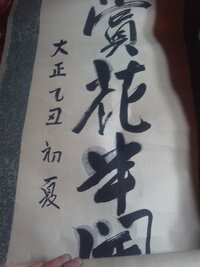 賞花半開
大正乙丑初夏